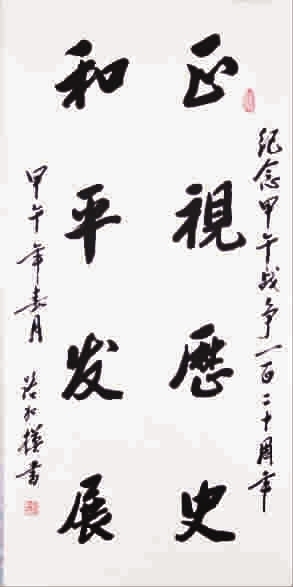 纪念甲午战争一百二十周年
正視歷史
和平发展
甲午年春月
书